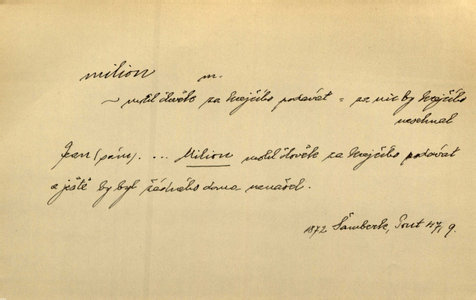 milion m.
~ mohl člověk za krejčího podávat = za nic by krejčího
nesehnal
Jean (sám). ... Milion mohl člověk za krejčího podávat
a ještě by byl žádného doma nenašel.
1872 Šamberk, 47, 9.